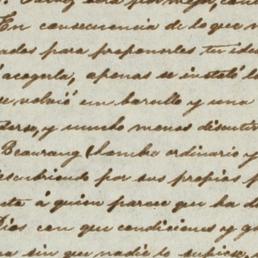 En consecuencia de lo que
ados para proponerles tu idea
acogerla, apenas se instaló l
se volvió un barullo y una
y mucho menos discutir
Beaurang (hombre ordinario y
escubriendo por sus propios p
á quien parece que ha d
Dios con que condiciones y g
sin que nadie lo supiese,